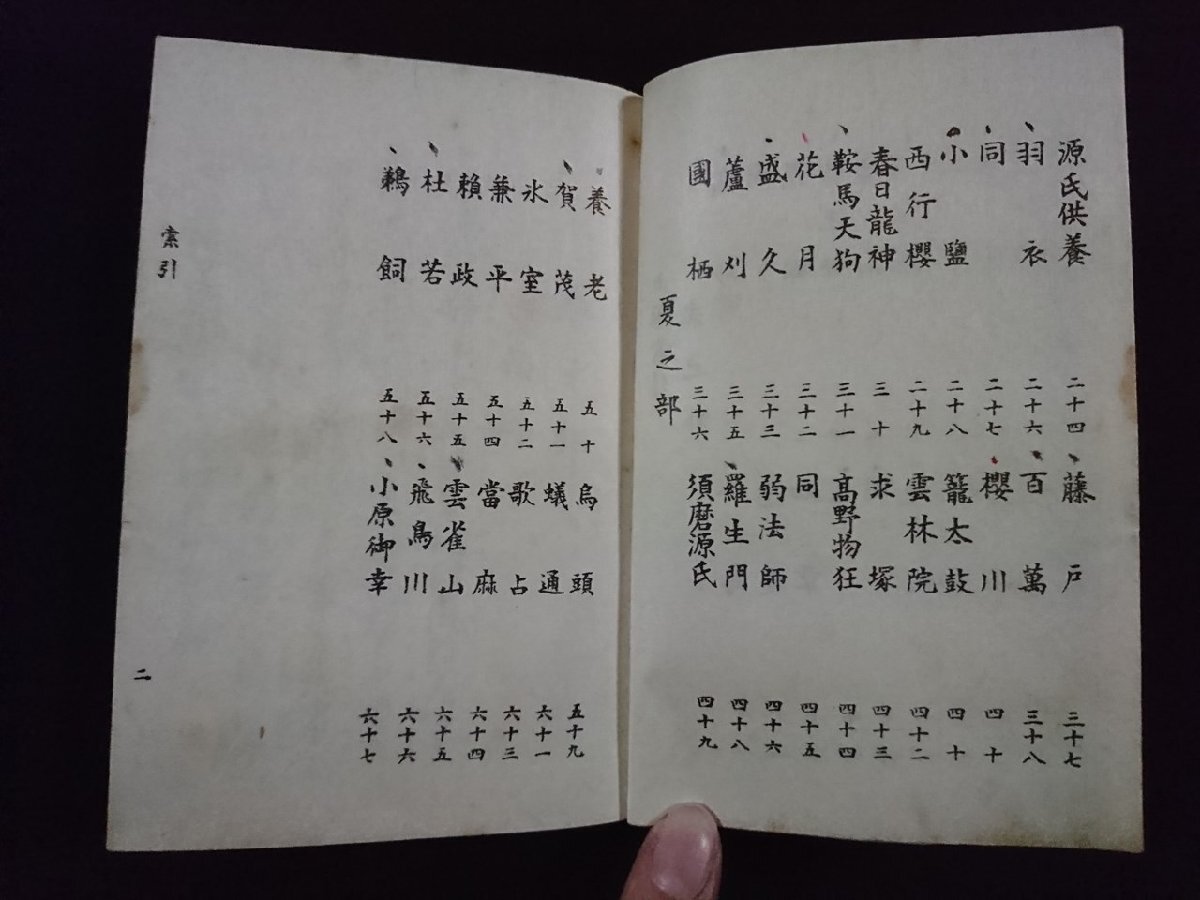 源氏供養 二十四
羽衣 二十六
同 二十七
小鹽 二十八
西行櫻 二十九
春日龍神 三十
鞍馬天狗 三十一
花月 三十二
盛久 三十三
蘆刈 三十五
國栖 三十六
藤戸 三十七
百萬 三十八
櫻川 四十
籠太鼓 四十
雲林院 四十二
求塚 四十三
高野物狂 四十四
同 四十五
弱法師 四十六
羅生門 四十八
須磨源氏 四十九
夏之部
養老 五十
賀茂 五十一
氷室 五十二
兼平 五十四
賴政 五十五
杜若 五十六
鵜飼 五十八
烏頭 五十九
蟻通 六十一
歌占 六十三
當麻 六十四
雲雀山 六十五
飛鳥川 六十六
小原御幸 六十七
索引
二